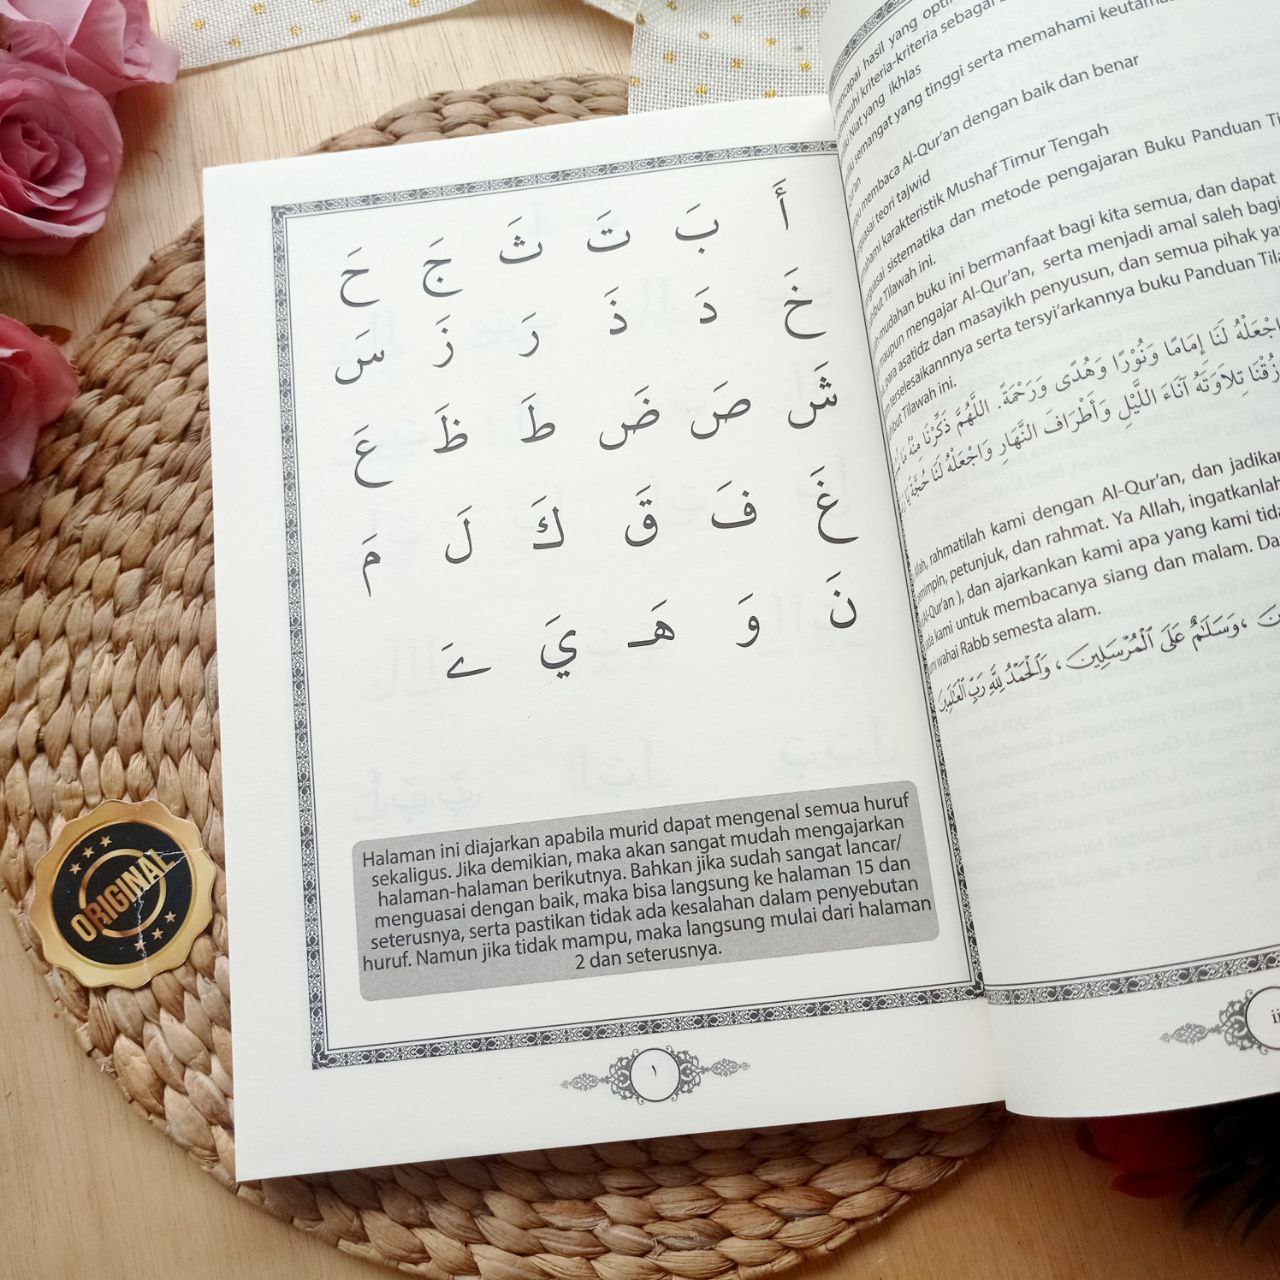 أَ بَ تَ ثَ جَ حَ
خَ دَ ذَ رَ زَ سَ
شَ صَ ضَ طَ ظَ عَ
غَ فَ قَ كَ لَ مَ
نَ وَ هَـ يَ ےَ
Halaman ini diajarkan apabila murid dapat mengenal semua huruf
sekaligus. Jika demikian, maka akan sangat mudah mengajarkan
halaman-halaman berikutnya. Bahkan jika sudah sangat lancar/
menguasai dengan baik, maka bisa langsung ke halaman 15 dan
seterusnya, serta pastikan tidak ada kesalahan dalam penyebutan
huruf. Namun jika tidak mampu, maka langsung mulai dari halaman
2 dan seterusnya.
١
hasil yang
kriteria-kriteria sebagai
Niat yang ikhlas
semangat yang tinggi serta memahami
membaca Al-Qur'an dengan baik dan benar
teori tajwid
karakteristik Mushaf Timur Tengah
sistematika dan metode pengajaran Buku Panduan
Tilawah ini.
buku ini bermanfaat bagi kita semua, dan dapat
maupun mengajar Al-Qur'an, serta menjadi amal saleh bagi
para asatidz dan masayikh penyusun, dan semua pihak
terselesaikannnya serta tersyi'arkannya buku Panduan
Tilawah ini.
اجْعَلْهُ لَنَا إِمَامًا وَنُوْرًا وَهُدًى وَرَحْمَةً. اللَّهُمَّ ذَكِّرْنَا مِنْهُ
تِلَاوَتَهُ آنَاءَ اللَّيْلِ وَأَطْرَافَ النَّهَارِ وَاجْعَلْهُ لَنَا حُجَّةً
rahmatilah kami dengan Al-Qur'an, dan jadikan
petunjuk, dan rahmat. Ya Allah, ingatkanlah
(Al-Qur'an ), dan ajarkankan kami apa yang kami
kami untuk membacanya siang dan malam.
wahai Rabb semesta alam.
وَسَلَامٌ عَلَى الْمُرْسَلِينَ، وَالْحَمْدُ لِلَّهِ رَبِّ الْعَالَمِينَ
ORIGINAL